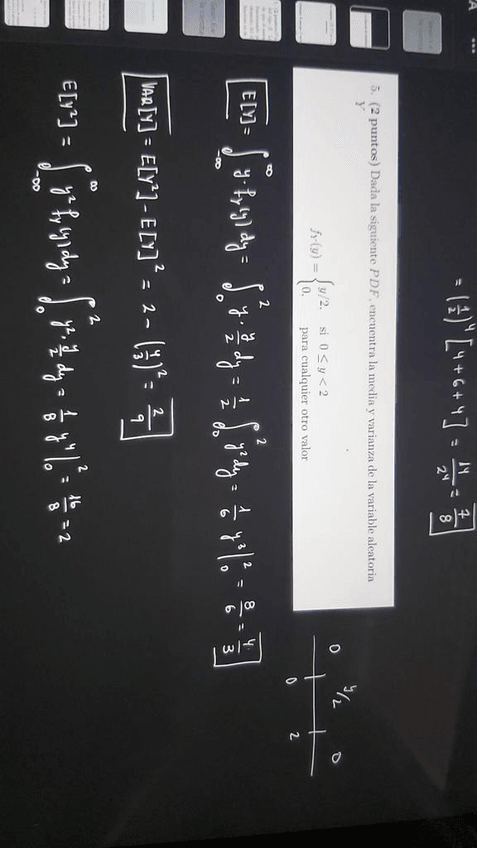 = (1/2)^4 [4+6+4] = 14/2^4 = 7/8
5. (2 puntos) Dada la siguiente PDF, encuentra la media y varianza de la variable aleatoria
Y
f_Y(y) = { y/2, si 0 ≤ y < 2
0, para cualquier otro valor
0 y/2 0
0 2
E[Y] = ∫_{-∞}^{∞} y · f_Y(y) dy = ∫_0^2 y · y/2 dy = 1/2 ∫_0^2 y² dy = 1/6 y³ |_0^2 = 8/6 = 4/3
VAR[Y] = E[Y²] - E[Y]² = 2 - (4/3)² = 2/9
E[Y²] = ∫_{-∞}^{∞} y² f_Y(y) dy = ∫_0^2 y² · y/2 dy = 1/8 y⁴ |_0^2 = 16/8 = 2